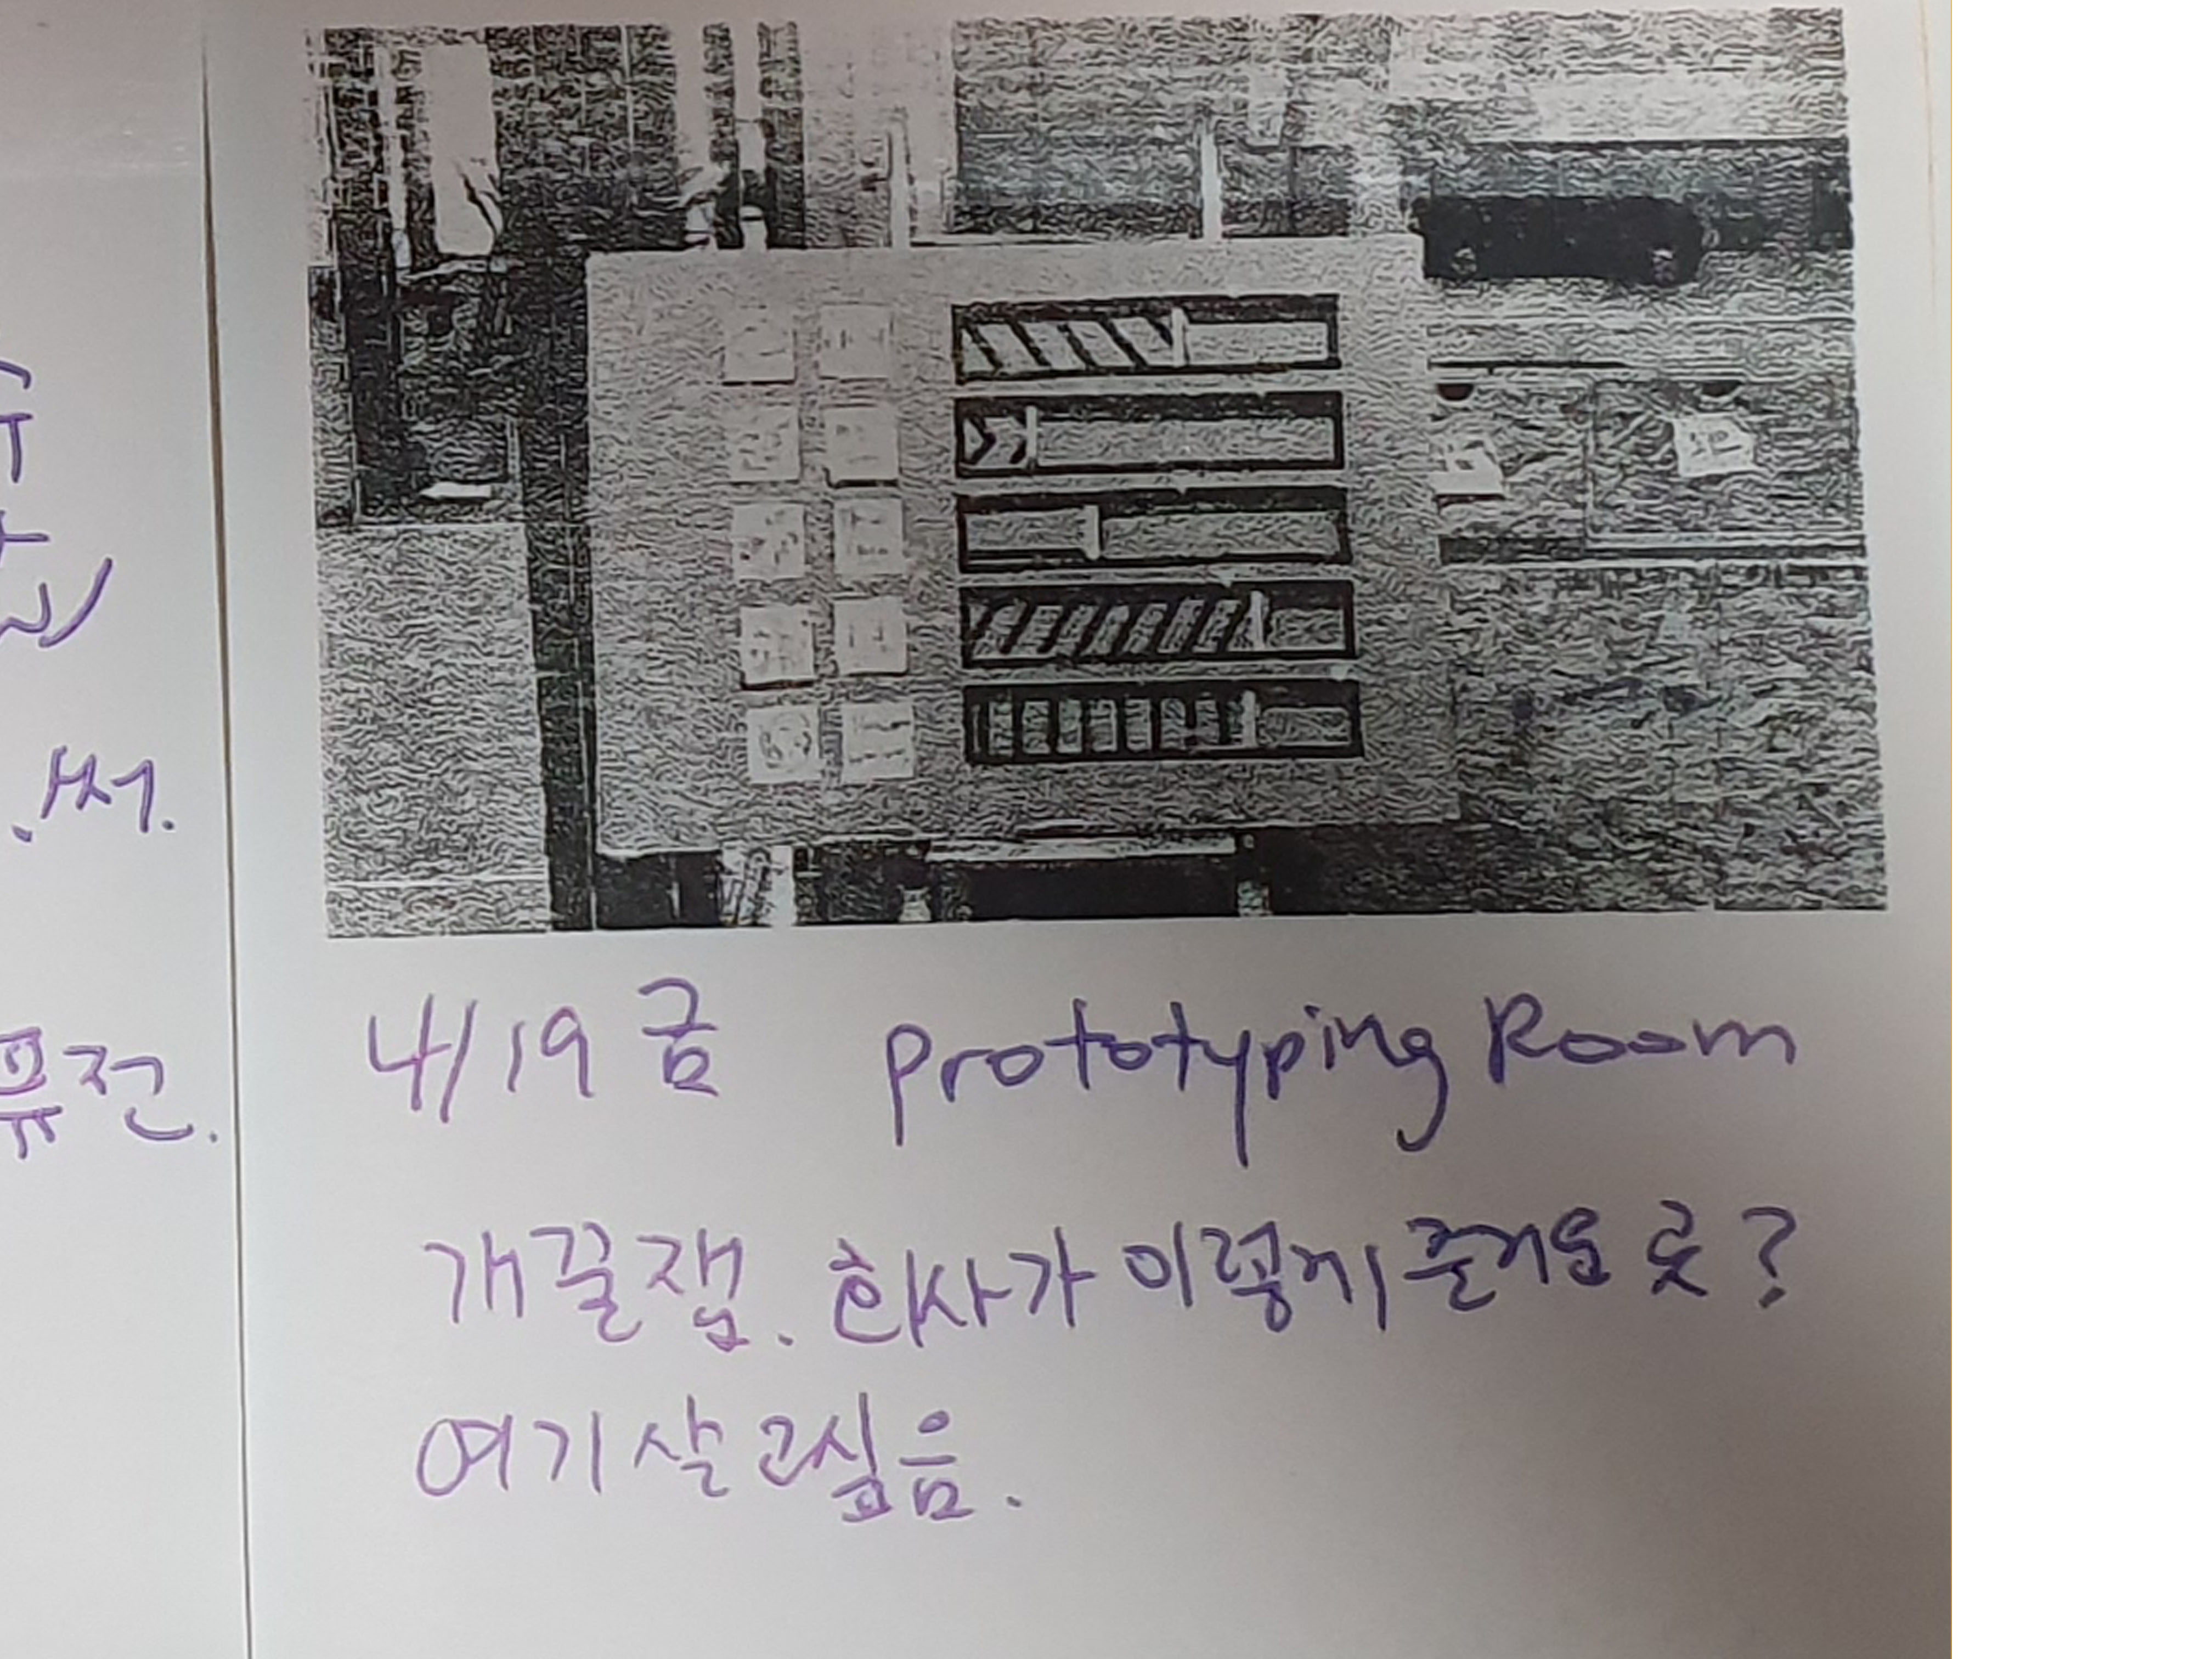 써.
퓨전.
4/19 금 Prototyping Room
개꿀잼. 회사가 이렇게 즐거운 곳?
여기 살고싶음.